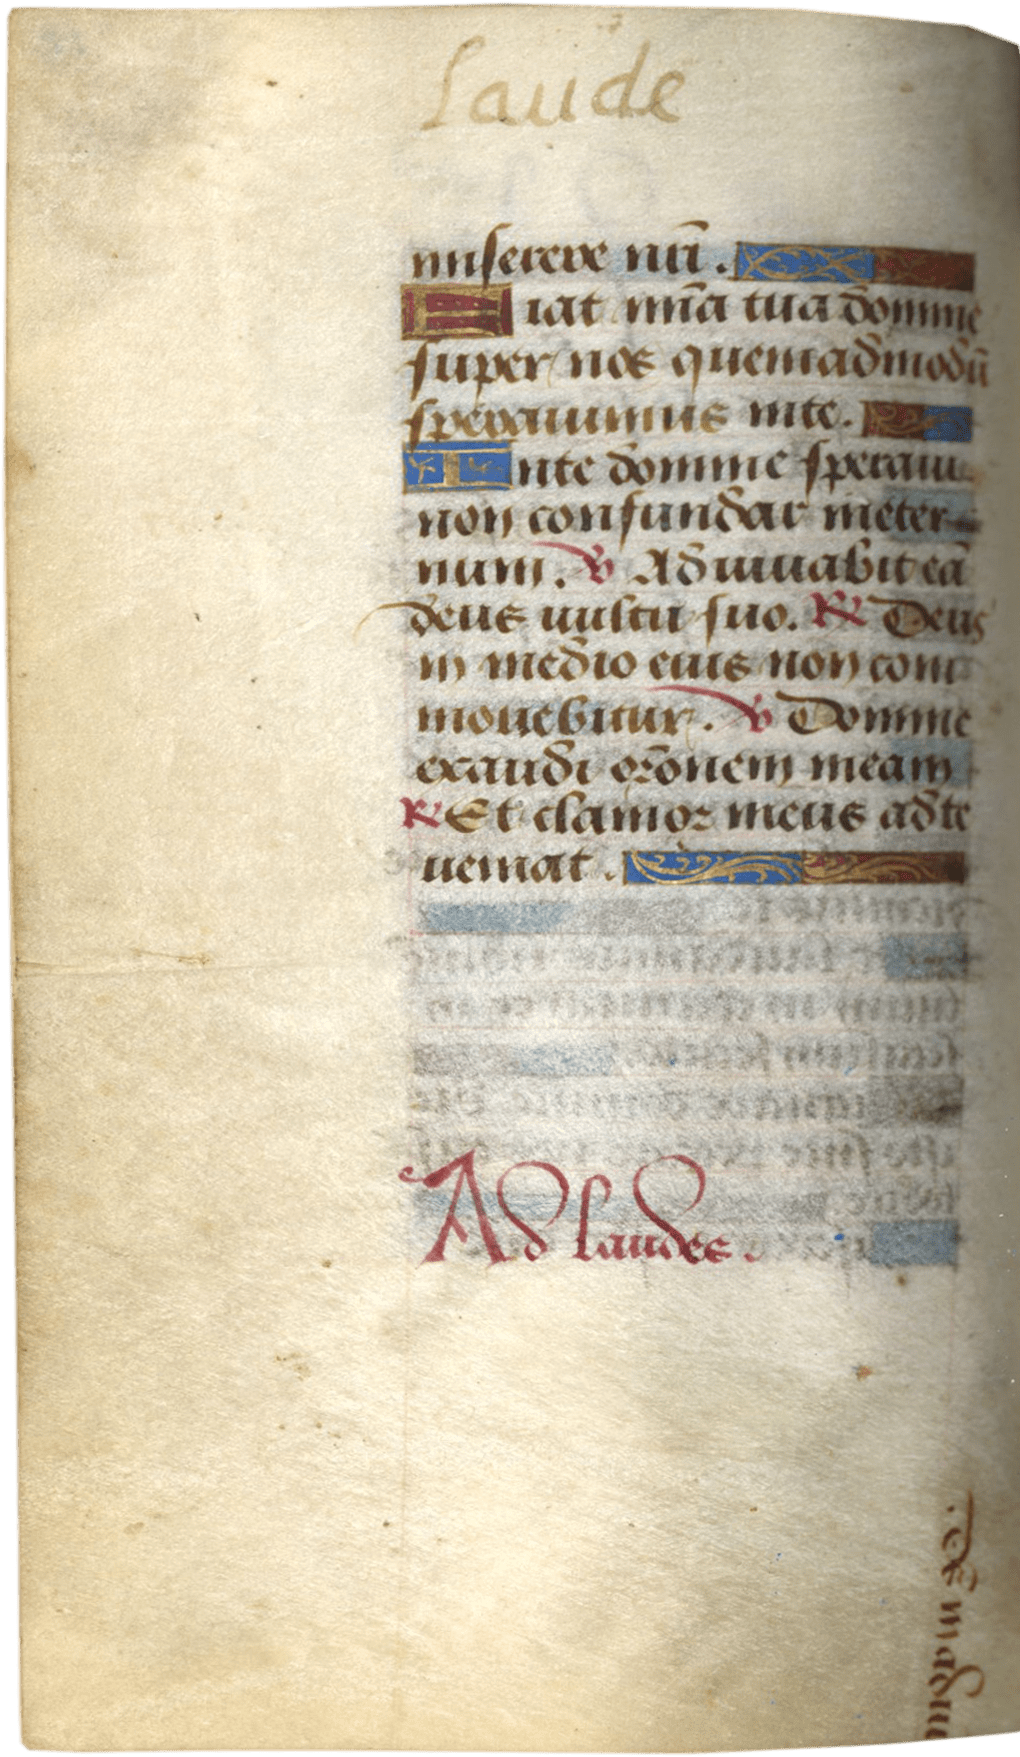 Laude
miserere nr̄i.
Fiat mīa tua domine
super nos quemadmodū
sperauimus inte.
Inte domine speraui
non confundar ineter
num. ℣ Adiuuabit eā
deus uultu suo. ℟ Deus
in medio eius non com
mouebitur. ℣ Domine
exaudi or̄onem meam
℟ Et clamor meus adte
ueniat.
Ad laudes.